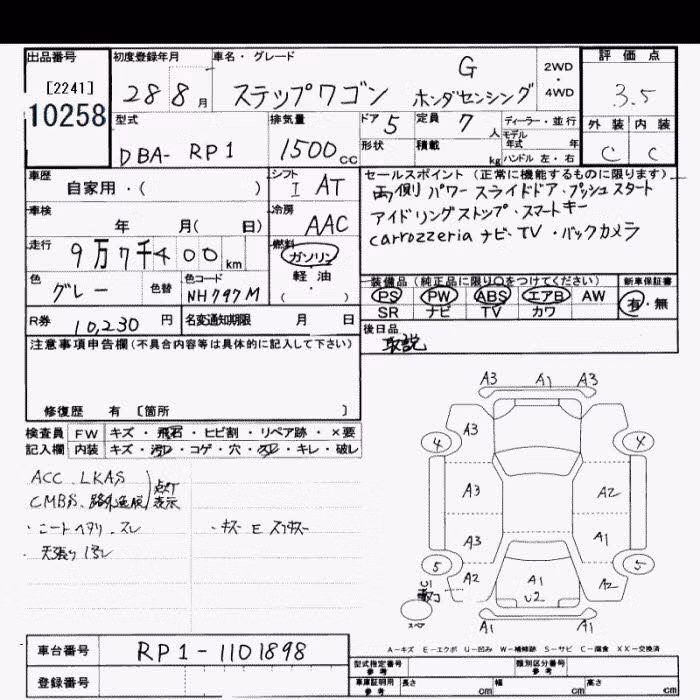 出品番号 初度登録年月 車名・グレード 評価点
[2241] 28 8月 ステップワゴン G 2WD・4WD 3.5
10258 ホンダセンシング
型式 排気量 ドア 5 定員 7人 ディーラー・並行 外装 内装
DBA- RP1 1500cc 形状 積載 kg モデル年式 年 ハンドル 左・右 C C
車歴 シフト セールスポイント (正常に機能するものに限ります)
自家用・( ) I AT 両側パワースライドドア・プッシュスタート
車検 冷房 アイドリングストップ・スマートキー
年 月( 日) AAC carrozzeria ナビ・TV・バックカメラ
走行 9万7千400km 燃料 ガソリン
軽油・( )
色 色替 色コード 装備品 (純正品に限り○をつけてください) 新車保証書
グレー NH797M PS PW ABS エアB AW 有・無
SR ナビ TV カワ
R券 10,230円 名変通知期限 月 日 後日品
取説
注意事項申告欄 (不具合内容等は具体的に記入して下さい)
修復歴 有 [箇所 ]
検査員 FW キズ・飛石・ヒビ割・リペア跡・×要
記入欄 内装 キズ・汚レ・コゲ・穴・スレ・キレ・破レ
ACC.LKAS
CMBS. 点灯
表示
・シートヘタリ.スレ ・キズ E
・天張り汚レ
A3 A1 A3
4 A3 4
A3 A2
A3 A1
5 A2 A1 U2 A2 5
U1
スペア A1 A1
A-キズ E-エクボ U-凹み W-補修跡 S-サビ C-腐食 XX-交換済
車台番号 RP1-1101898
登録番号
型式指定番号 参考 類別区分番号 参考
車庫証明用 参考 長さ cm 幅 cm 高さ cm